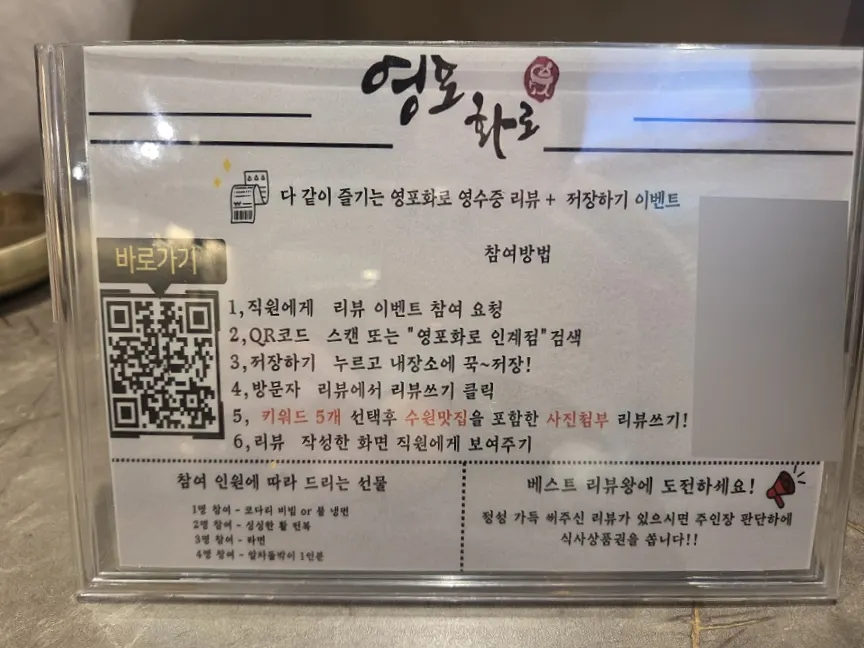 영포화로
다 같이 즐기는 영포화로 영수증 리뷰 + 저장하기 이벤트
참여방법
바로가기
1,직원에게 리뷰 이벤트 참여 요청
2,QR코드 스캔 또는 "영포화로 인계점"검색
3,저장하기 누르고 내장소에 꾹~저장!
4,방문자 리뷰에서 리뷰쓰기 클릭
5, 키워드 5개 선택후 수원맛집을 포함한 사진첨부 리뷰쓰기!
6,리뷰 작성한 화면 직원에게 보여주기
참여 인원에 따라 드리는 선물
1명 참여 - 코다리 비빔 or 물 냉면
2명 참여 - 싱싱한 활 전복
3명 참여 - 라면
4명 참여 - 알차돌박이 1인분
베스트 리뷰왕에 도전하세요!
정성 가득 써주신 리뷰가 있으시면 주인장 판단하에
식사상품권을 쏩니다!!